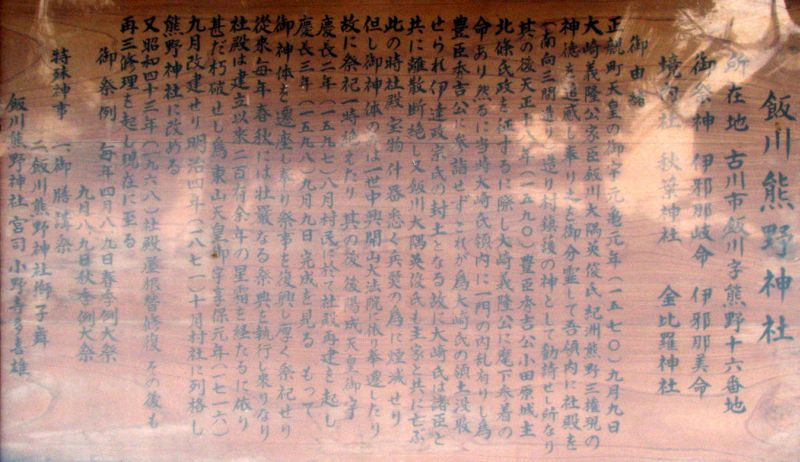 飯川熊野神社
所在地 古川市飯川字熊野十六番地
御祭神 伊邪那岐命 伊邪那美命
境内社 秋葉神社 金比羅神社
御由緒
正親町天皇の御宇元亀元年(一五七〇)九月九日
大崎義隆公家臣飯川大隅英俊氏紀洲熊野三権現の
神徳を追感し奉り之を御分霊して吾領内に社殿を
(南向三間造り)造り村鎮護の神として勧請せし所なり
其の後天正十八年(一五九〇)豊臣秀吉公小田原城主
北條氏政を征するに際し大崎義隆公に麾下参着の
命あり然るに当時大崎氏領内に一門の内乱有りし為
豊臣秀吉公に参詣せずこれが為大崎氏の領土没収
せられ伊達政宗氏の封土となる故に大崎氏は諸臣と
共に離散断絶し又飯川大隅英俊氏も主家と共に亡ぶ
此の時社殿宝物什器悉く兵燹の為に煙滅せり
但し御神体のみは一世中興開山大法院に依り奉還したり
故に祭祀一時絶えたり 其の後後陽成天皇御宇
慶長二年(一五九七)八月村民に於て社殿再建を起し
慶長三年(一五九八)九月九日完成を見る もって、
御神体を遷座し奉り祭事を復興し厚く祭祀せり
従来毎年春秋には壮厳なる祭典を執行し来りなり
社殿は建立以来二百有余年の星霜を経たるに依り
甚だ朽破せし為東山天皇御宇享保元年(一七一六)
九月改建せり明治四年(一八七一)十月村社に列格し
熊野神社に改める
又昭和四十三年(一九六八)社殿屋根替修復 その後も
再三修理を起し現在に至る
御祭例 毎年四月八、九日春季例大祭
九月八、九日秋季例大祭
特殊神事 一、御膳講祭
二、飯川熊野神社獅子舞
飯川熊野神社宮司 小野寺多喜雄